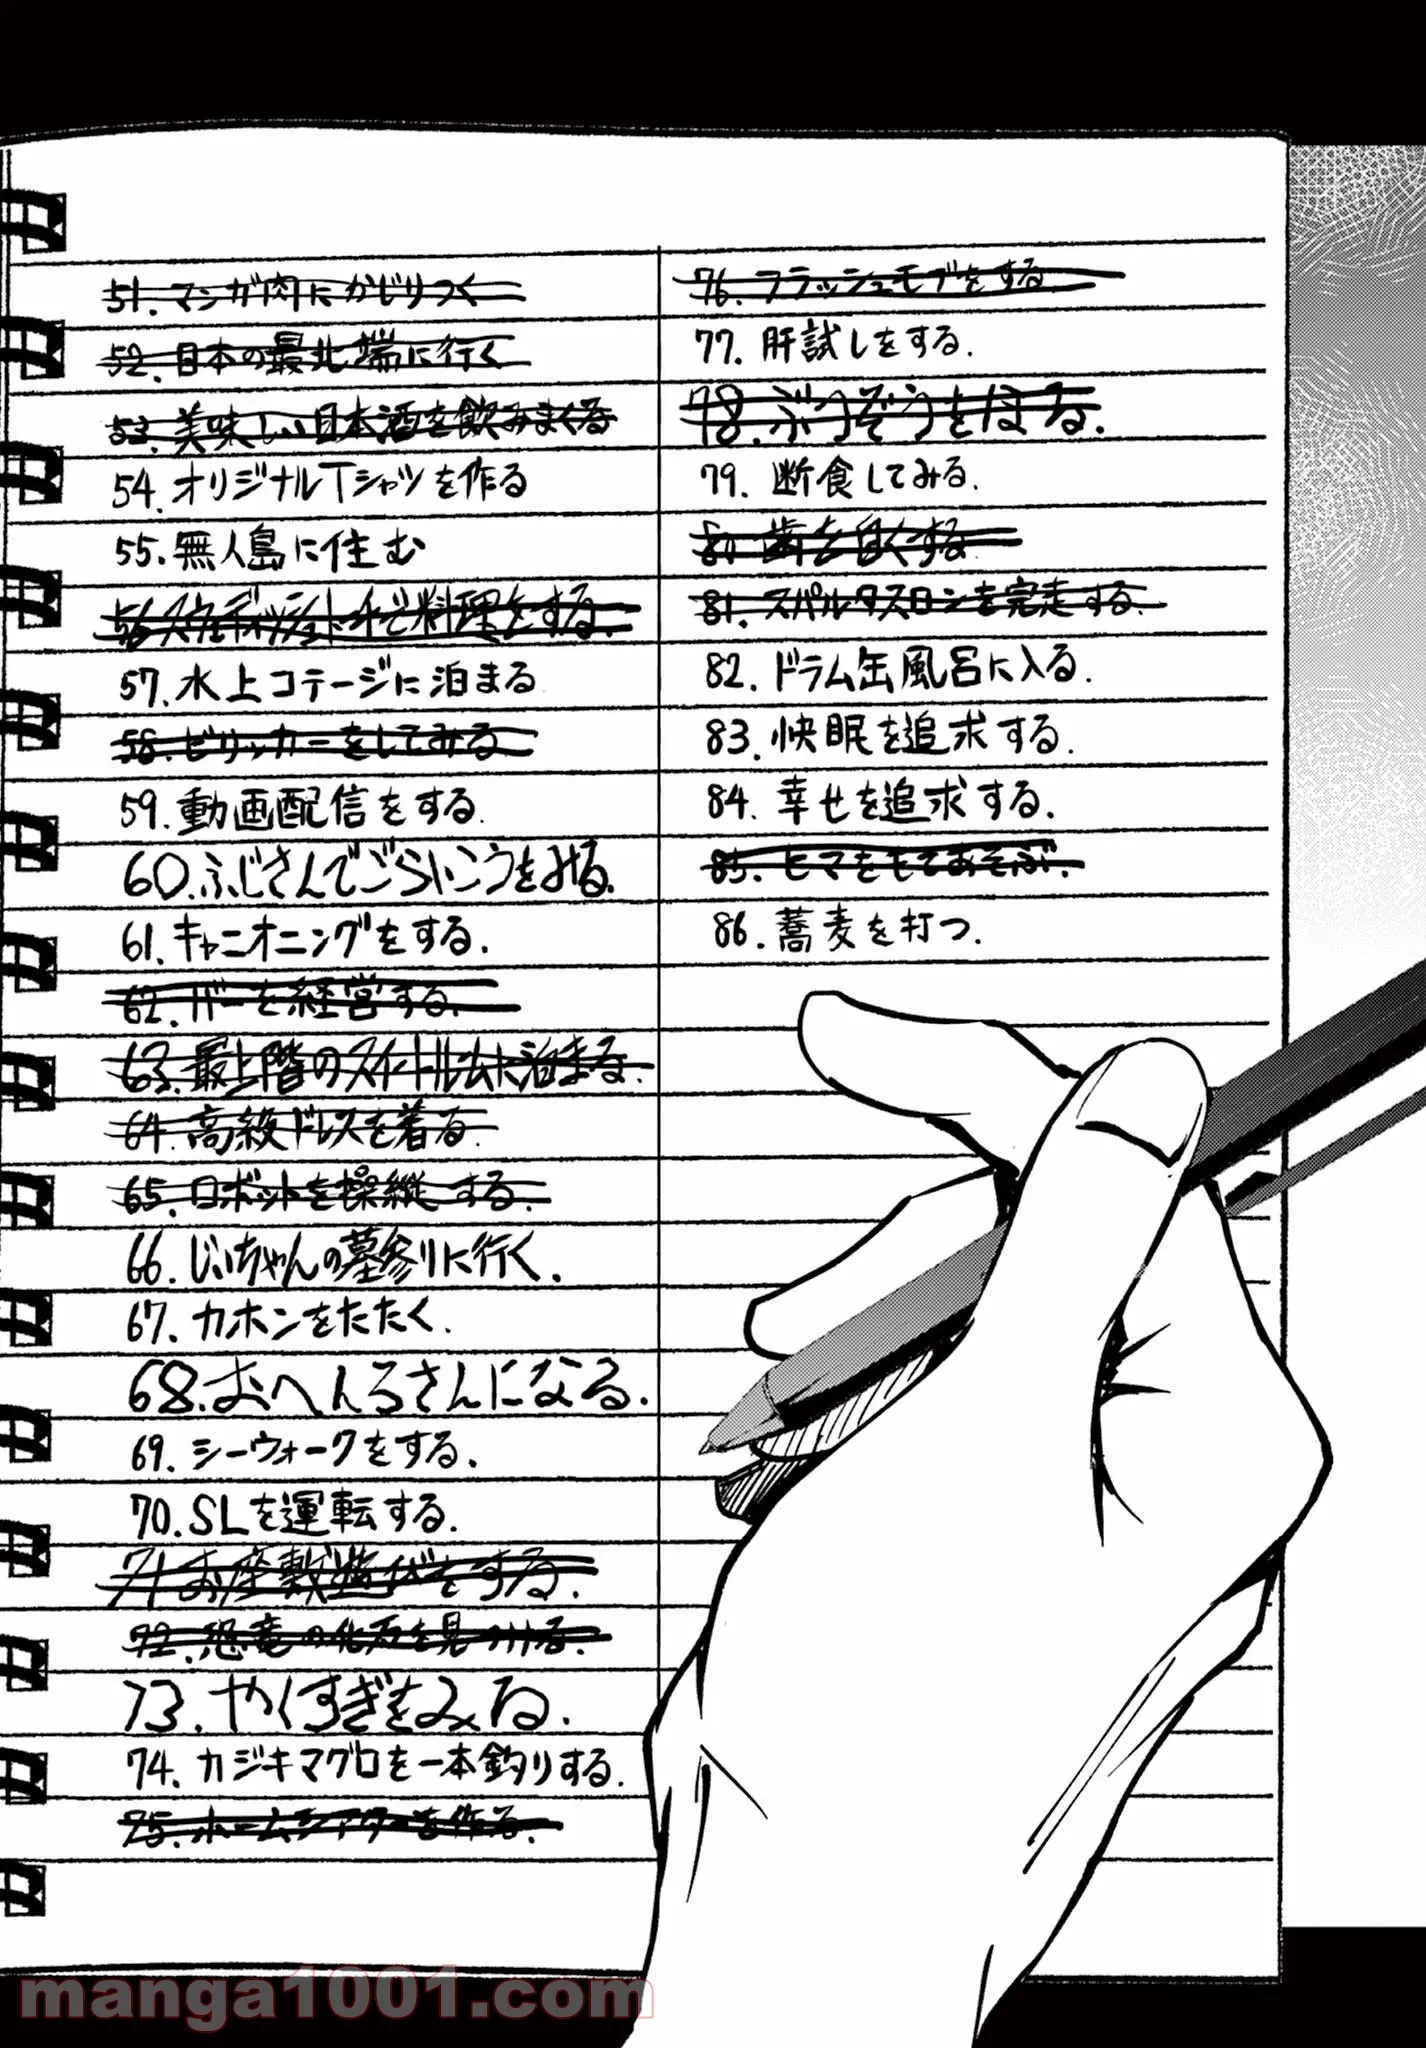 51. マンガ肉にかじりつく
52. 日本の最北端に行く
53. 美味しい日本酒を飲みまくる
54. オリジナルTシャツを作る
55. 無人島に住む
56. スウェーディッシュトーチで料理をする.
57. 水上コテージに泊まる
58. ビリッカーをしてみる
59. 動画配信をする.
60. ふじさんでごらいこうをみる.
61. キャニオニングをする.
62. バーを経営する.
63. 最上階のスイートルームに泊まる.
64. 高級ドレスを着る.
65. ロボットを操縦する.
66. じいちゃんの墓参りに行く.
67. カホンをたたく.
68. おへんろさんになる.
69. シーウォークをする.
70. SLを運転する.
71. お座敷遊びをする.
72. 恐竜の化石を見つける.
73. やくすぎをみる.
74. カジキマグロを一本釣りする.
75. ホームシアターを作る.
76. フラッシュモブをする.
77. 肝試しをする.
78. ぶつぞうをほる.
79. 断食してみる.
80. 歯を白くする.
81. スパルタスロンを完走する.
82. ドラム缶風呂に入る.
83. 快眠を追求する.
84. 幸せを追求する.
85. ヒマをもてあそぶ.
86. 蕎麦を打つ.
manga1001.com